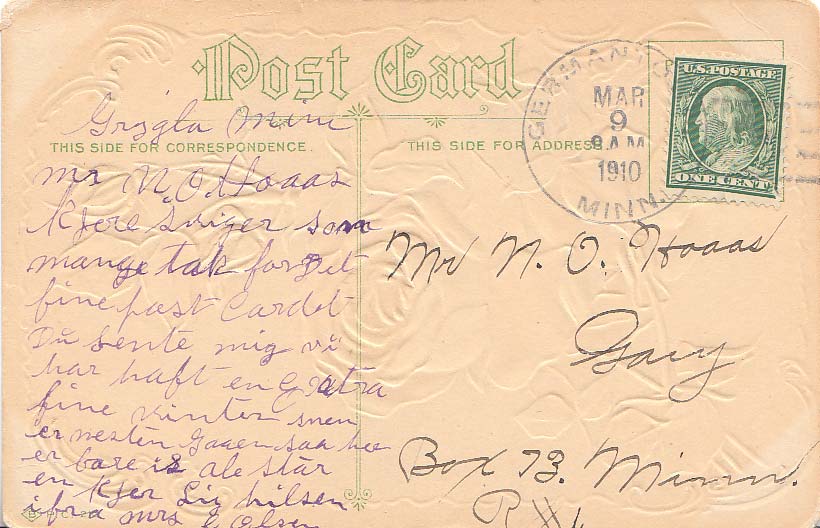 Post Card
THIS SIDE FOR CORRESPONDENCE.
THIS SIDE FOR ADDRESS
GERMANTO
MAR
9
8 AM
1910
MINN.
U.S. POSTAGE
ONE CENT
Minn
Mr N. O. Hoaas
Kjere sviger som
mange tak for Det
fine post Cardet
Du sente mig vi
har haft en
fine vinter snen
er nesten saa
er bare
en Kjer hilsen
ifra Mrs Olsen
Mr N. O. Hoaas
Gary
Box 73. Minn.